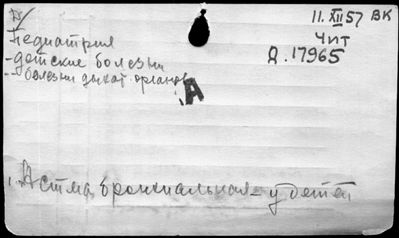 11. XII 57 ВК
Чит
Д. 17965
Педиатрия
- детские болезни
- болезни дыхат органов
А
Астма бронхиальная - у детей